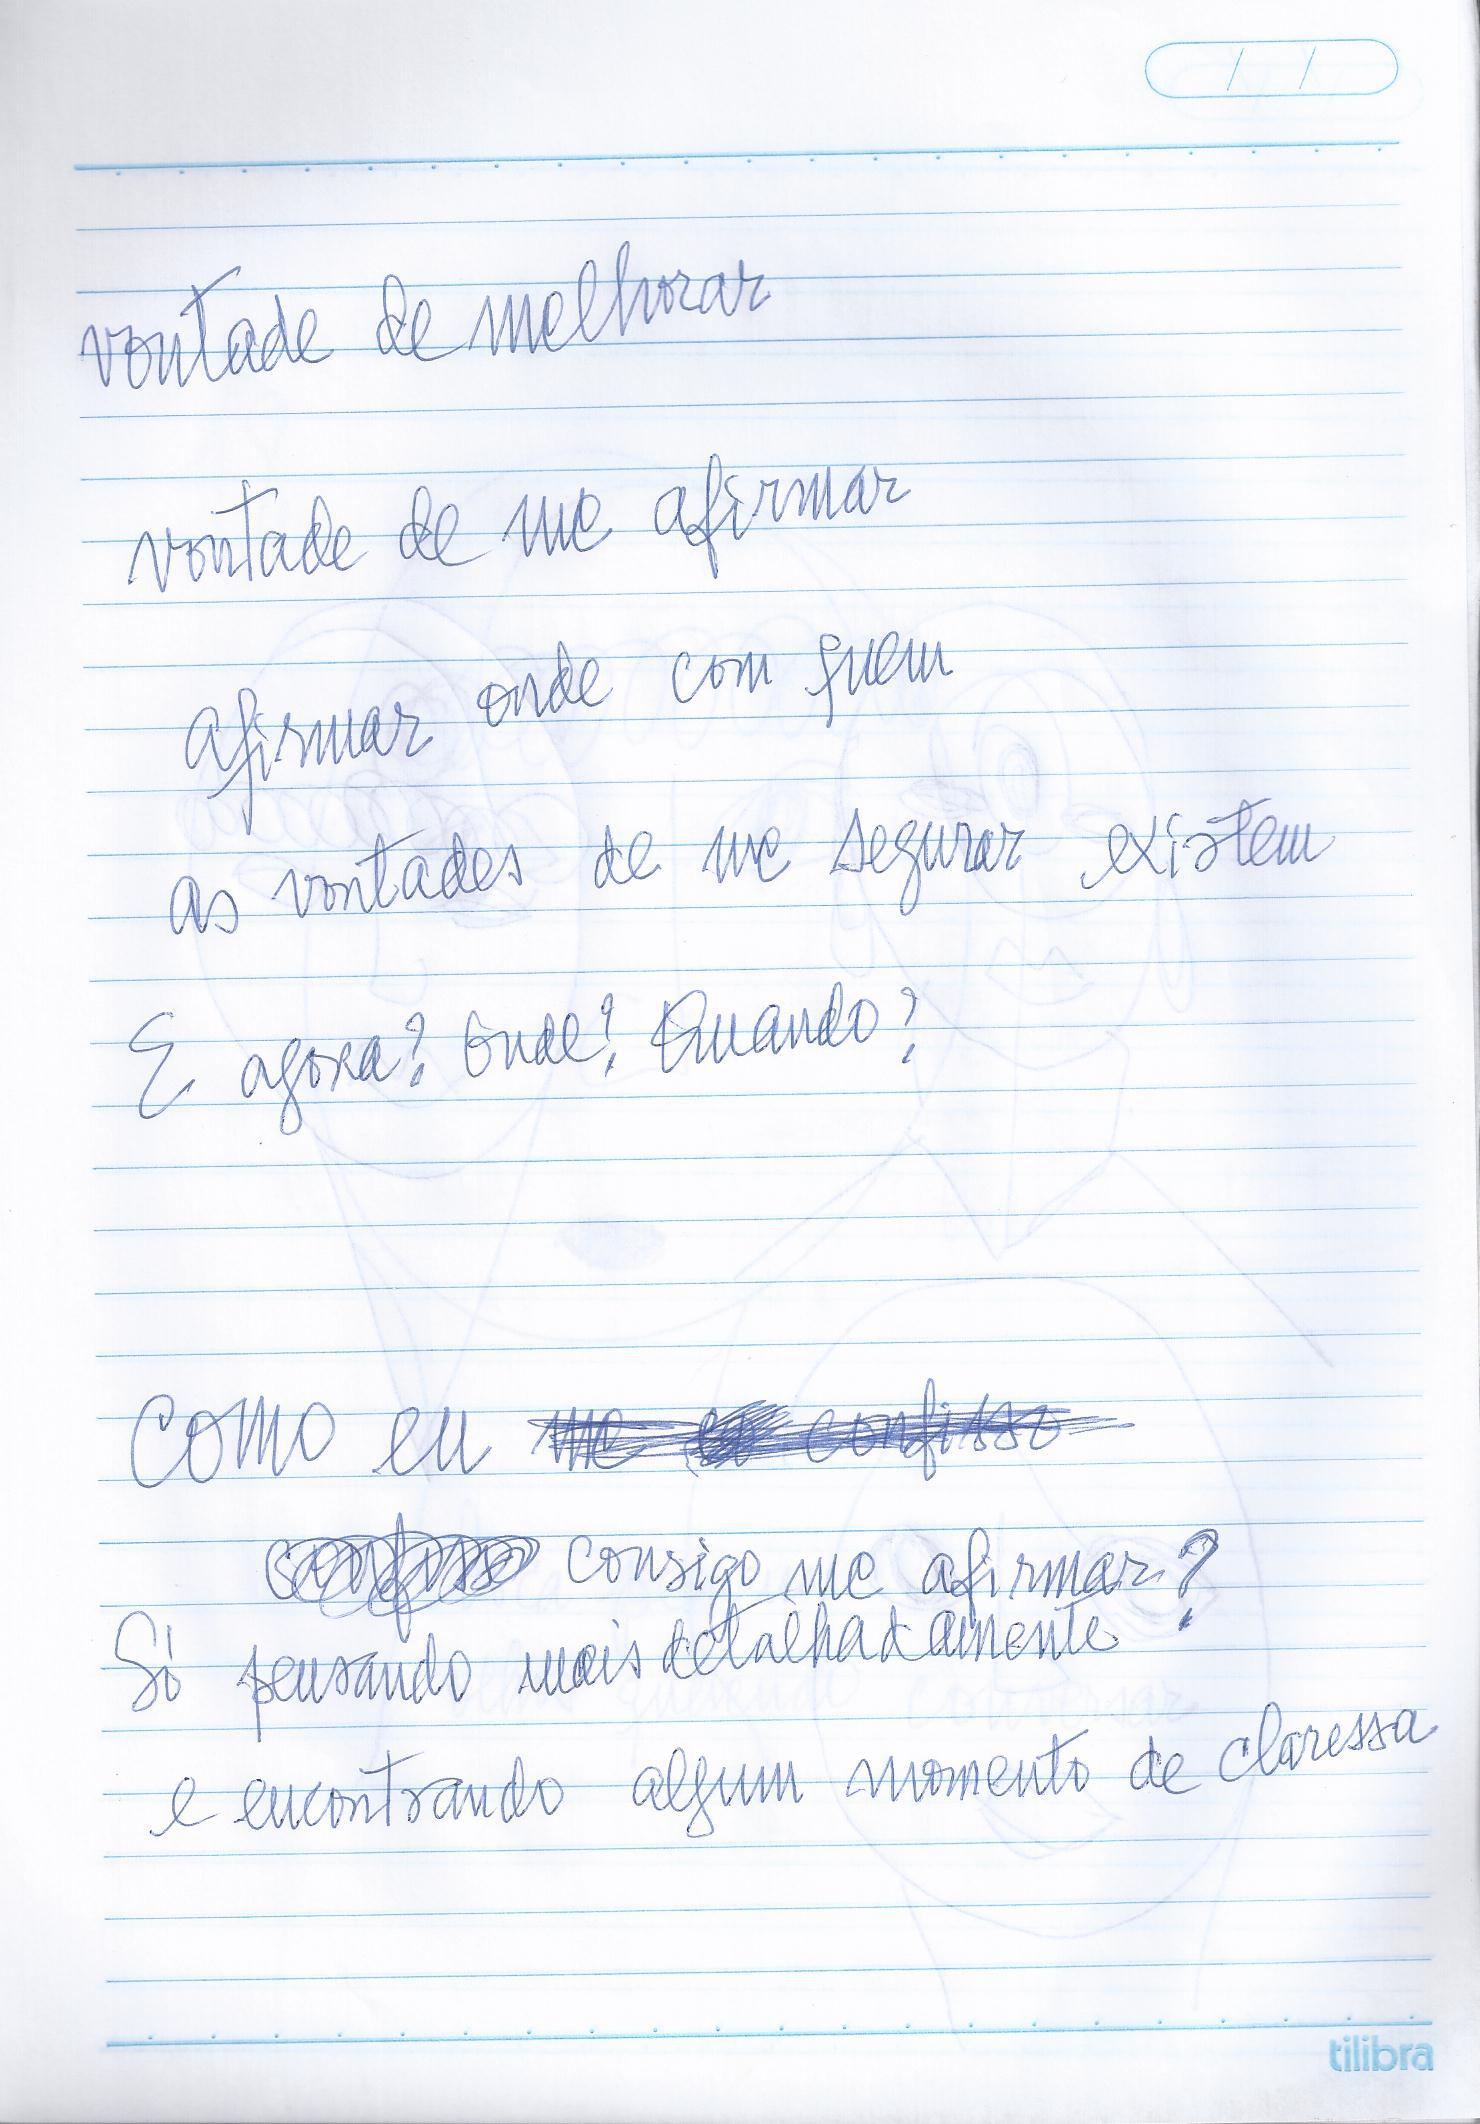 vontade de melhorar
vontade de me afirmar
afirmar onde com quem
as vontades de me segurar existem
E agora? Onde? Quando?
Como eu me confisso
confisso consigo me afirmar?
Só pensando mais detalhadamente
e encontrando algum momento de claressa
tilibra